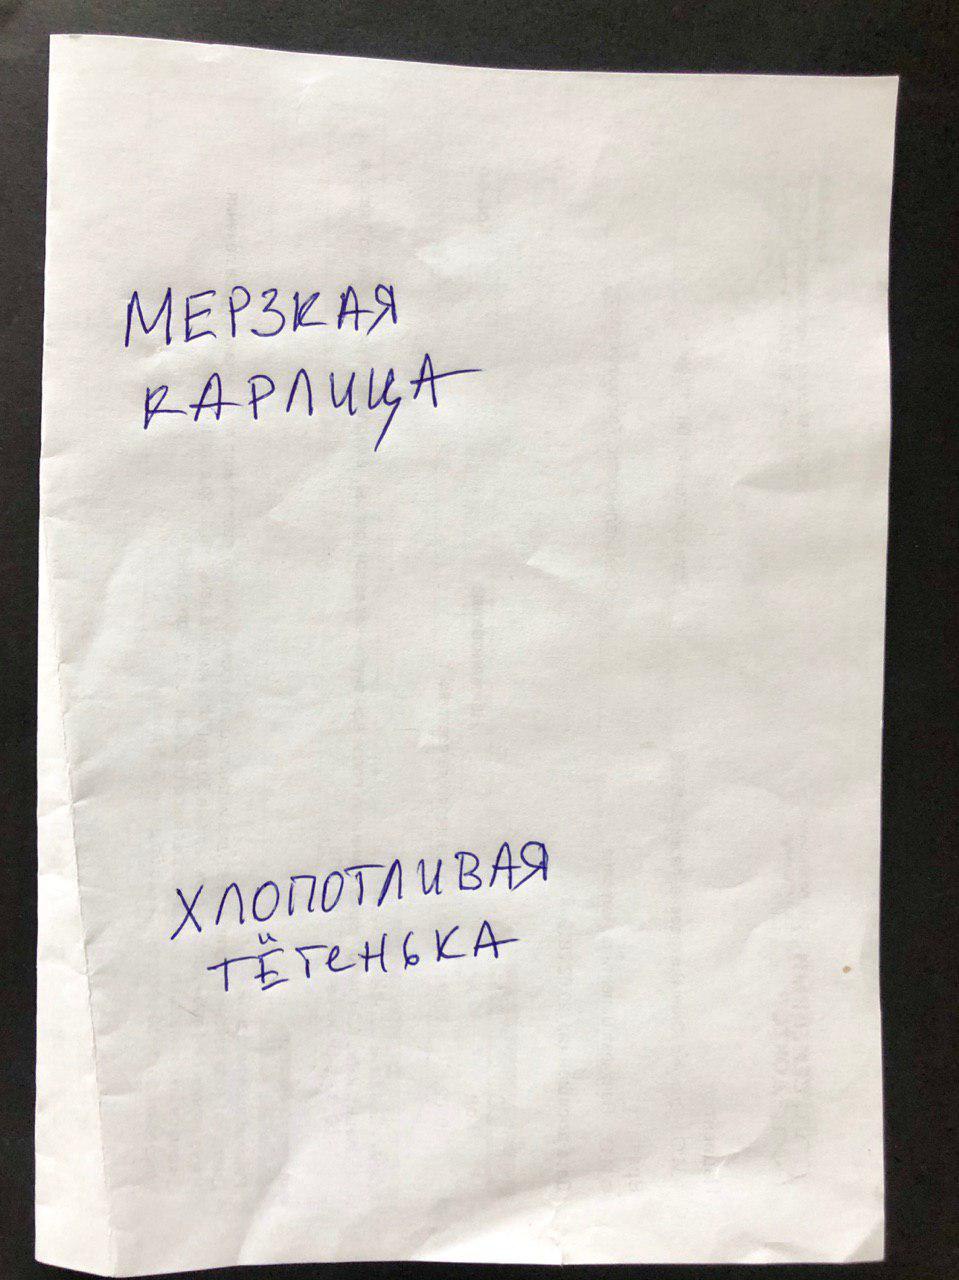 МЕРЗКАЯ
КАРЛИЦА
ХЛОПОТЛИВАЯ
ТЁТЕНЬКА